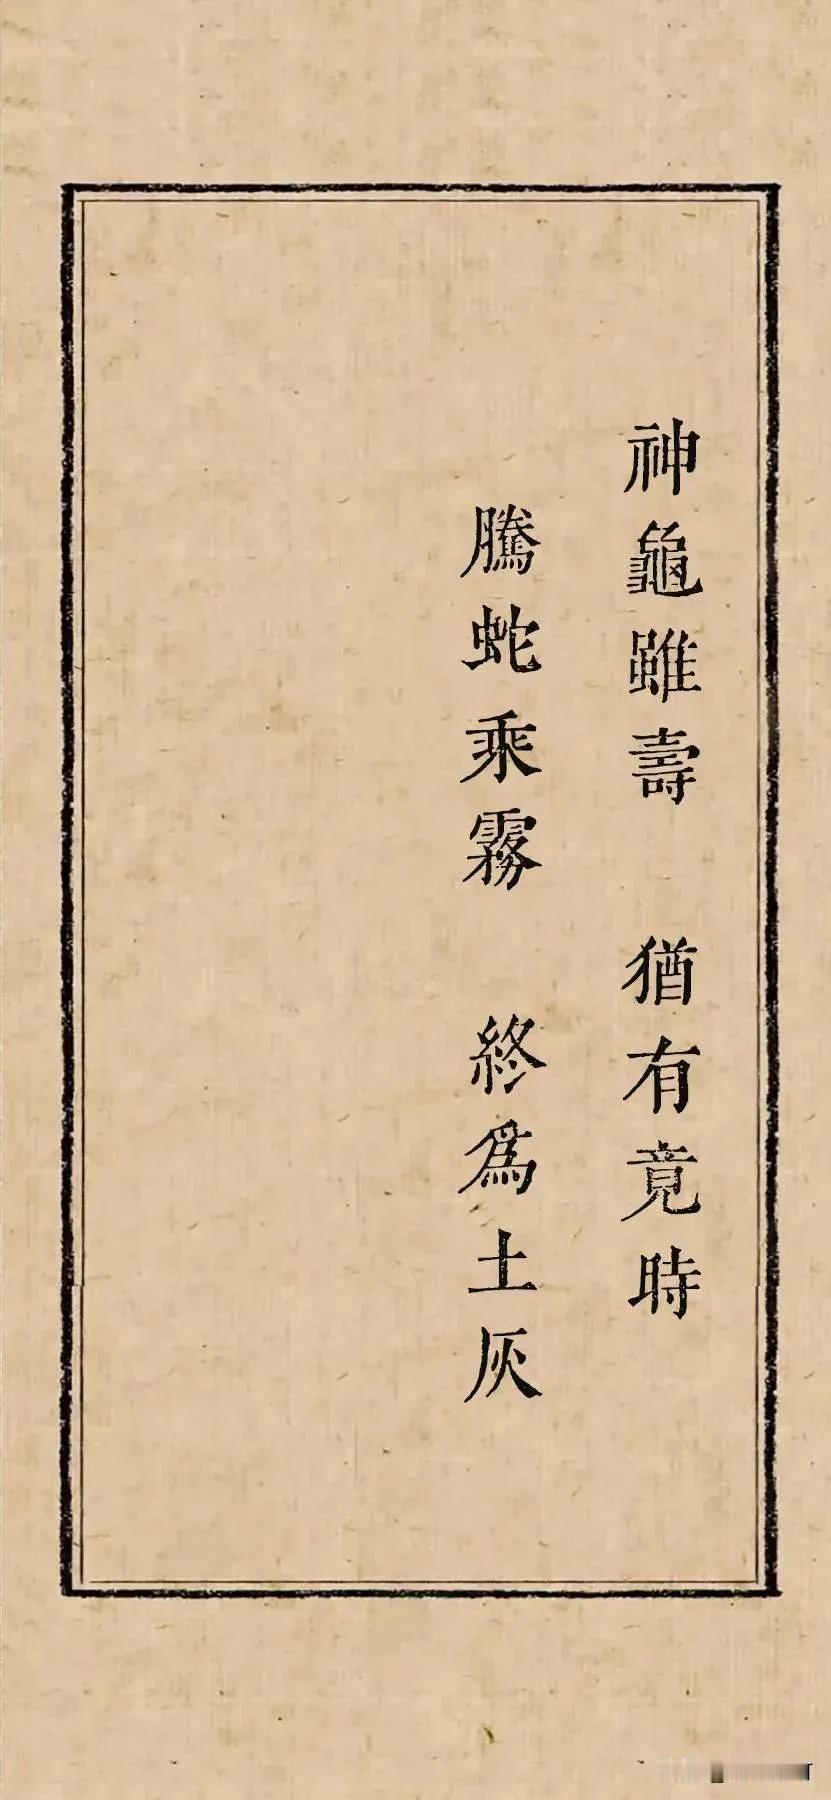 神龜雖壽 猶有竟時
騰蛇乘霧 終爲土灰